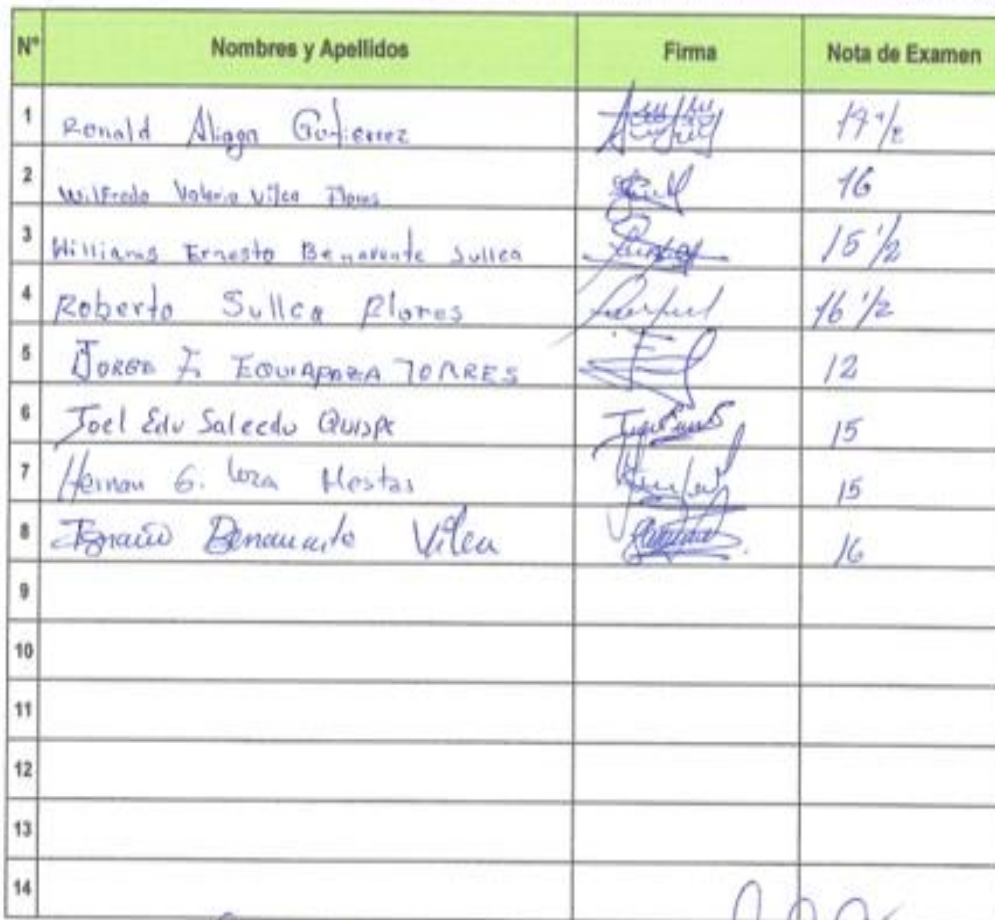 N° Nombres y Apellidos Firma Nota de Examen
1 Ronald Aliaga Gutierrez
2 Wilfredo Valerio Vilca Flores 16
3 Williams Ernesto Benavente Sullca 15 1/2
4 Roberto Sullca Flores 16 1/2
5 JORGE F. EQUIAPAZA TORRES 12
6 Joel Edu Salcedo Quispe 15
7 Hernan G. Loza Mestas 15
8 Ignacio Benavente Vilca 16
9
10
11
12
13
14